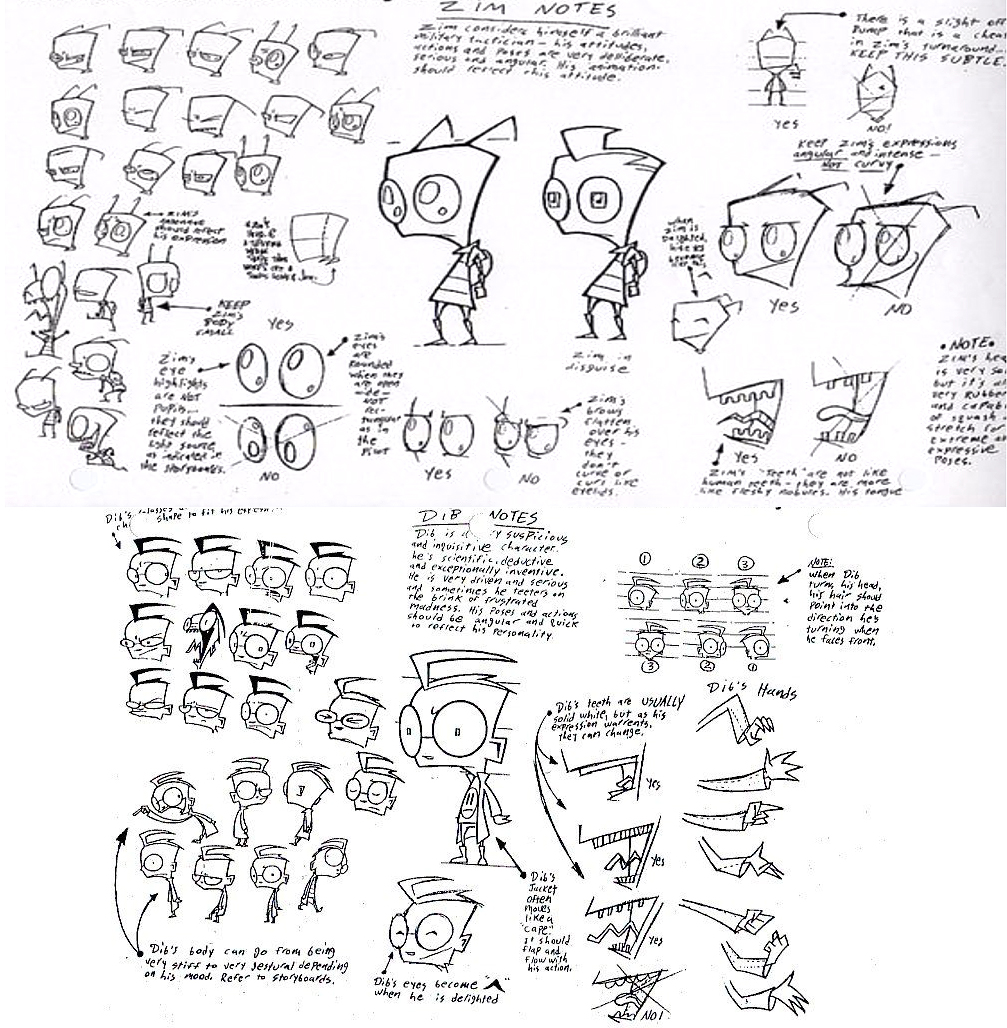 ZIM NOTES
Zim considers himself a brilliant
military tactician - his attitudes,
actions and poses are very deliberate,
serious and angular. His animation
should reflect this attitude.
There is a slight
bump that is a
in Zim's turnaround -
KEEP THIS SUBTLE.
Yes
NO!
KEEP Zim's expressions
angular and intense -
NOT curvy
Zim's
antennae
should reflect
his expression
KEEP
Zim's
BODY
SMALL
when
Zim is
delighted,
Yes
NO
Zim in
disguise
Yes
Zim's
eye
highlights
are NOT
pupils...
they should
reflect the
light source
as indicated in
the storyboards.
NO
Zim's
eyes
are
rounded
when they
are open
NOT
rec-
tangular
as in
the
pilot
Yes
NO
Zim's
brows
flatten
over his
eyes -
they
don't
curve or
curl like
eyelids.
Yes
NO
Zim's "Teeth" are not like
human teeth - they are more
like fleshy nobules. His tongue
• NOTE •
Zim's head
is very
but it's
very rubber
and
of squash -
stretch for
extreme or
expressive
poses.
Dib's
shape to fit his
DIB NOTES
Dib is a suspicious
and inquisitive character.
he's scientific, deductive
and exceptionally inventive.
He is very driven and serious
and sometimes he teeters on
the brink of frustrated
madness. His poses and actions
should be angular and quick
to reflect his personality.
1 2 3
3 2 1
NOTE:
when Dib
turns his head,
his hair should
point into the
direction he's
turning when
he faces front.
Dib's teeth are USUALLY
solid white, but as his
expression warrents,
they can change.
Yes
Yes
Yes
NO!
Dib's Hands
Dib's
Jacket
often
moves
like a
"cape".
it should
flap and
flow with
his action.
Dib's body can go from being
very stiff to very gestural depending
on his mood. Refer to storyboards.
Dib's eyes become "^"
when he is delighted